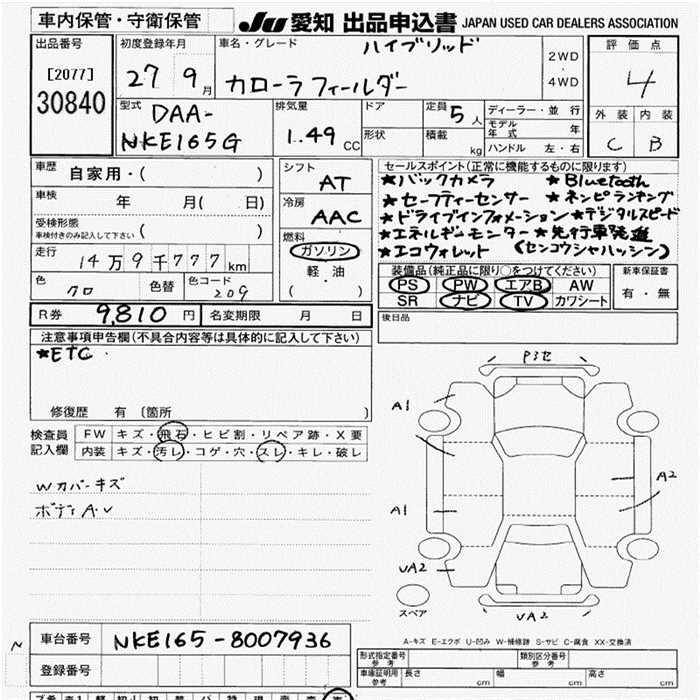 車内保管・守衛保管
JU 愛知 出品申込書 JAPAN USED CAR DEALERS ASSOCIATION
出品番号
[2077]
30840
初度登録年月
27 9月
車名・グレード
ハイブリッド
カローラフィールダー
2WD
・
4WD
評価点
4
外装 内装
C B
型式
DAA-
NKE165G
排気量
1.49 CC
ドア
形状
定員 5人
積載 kg
ディーラー・並行
モデル年式 年
ハンドル 左・右
車歴 自家用・( )
車検 年 月( 日)
受検形態
車検付きのみ記入して下さい ( )
走行 14万9千777km
色 クロ 色替 色コード 209
シフト
AT
冷房
AAC
燃料
ガソリン
軽・油
( )
セールスポイント(正常に機能するものに限ります)
★バックカメラ ★Bluetooth
★セーフティーセンサー ★ネンピランキング
★ドライブインフォメーション ★デジタルスピード
★エネルギーモニター ★先行車発進
★エコウォレット (センコウシャハッシン)
装備品(純正品に限り○をつけてください)
PS PW エアB AW
SR ナビ TV カワシート
新車保証書
有・無
R券 9,810円 名変期限 月 日
後日品
注意事項申告欄(不具合内容等は具体的に記入して下さい)
★ETC
修復歴 有 (箇所 )
検査員
記入欄
FW キズ・飛石・ヒビ割・リペア跡・X要
内装 キズ・汚レ・コゲ・穴・スレ・キレ・破レ
Wカバーキズ
ボディA.U
P3セ
A1
A1
A2
UA2
UA2
スペア
A-キズ E-エクボ U-凹み W-補修跡 S-サビ C-腐食 XX-交換済
N
車台番号 NKE165-8007936
登録番号
形式指定番号
参考
類別区分番号
参考
車庫証明用
参考
長さ cm 幅 cm 高さ cm